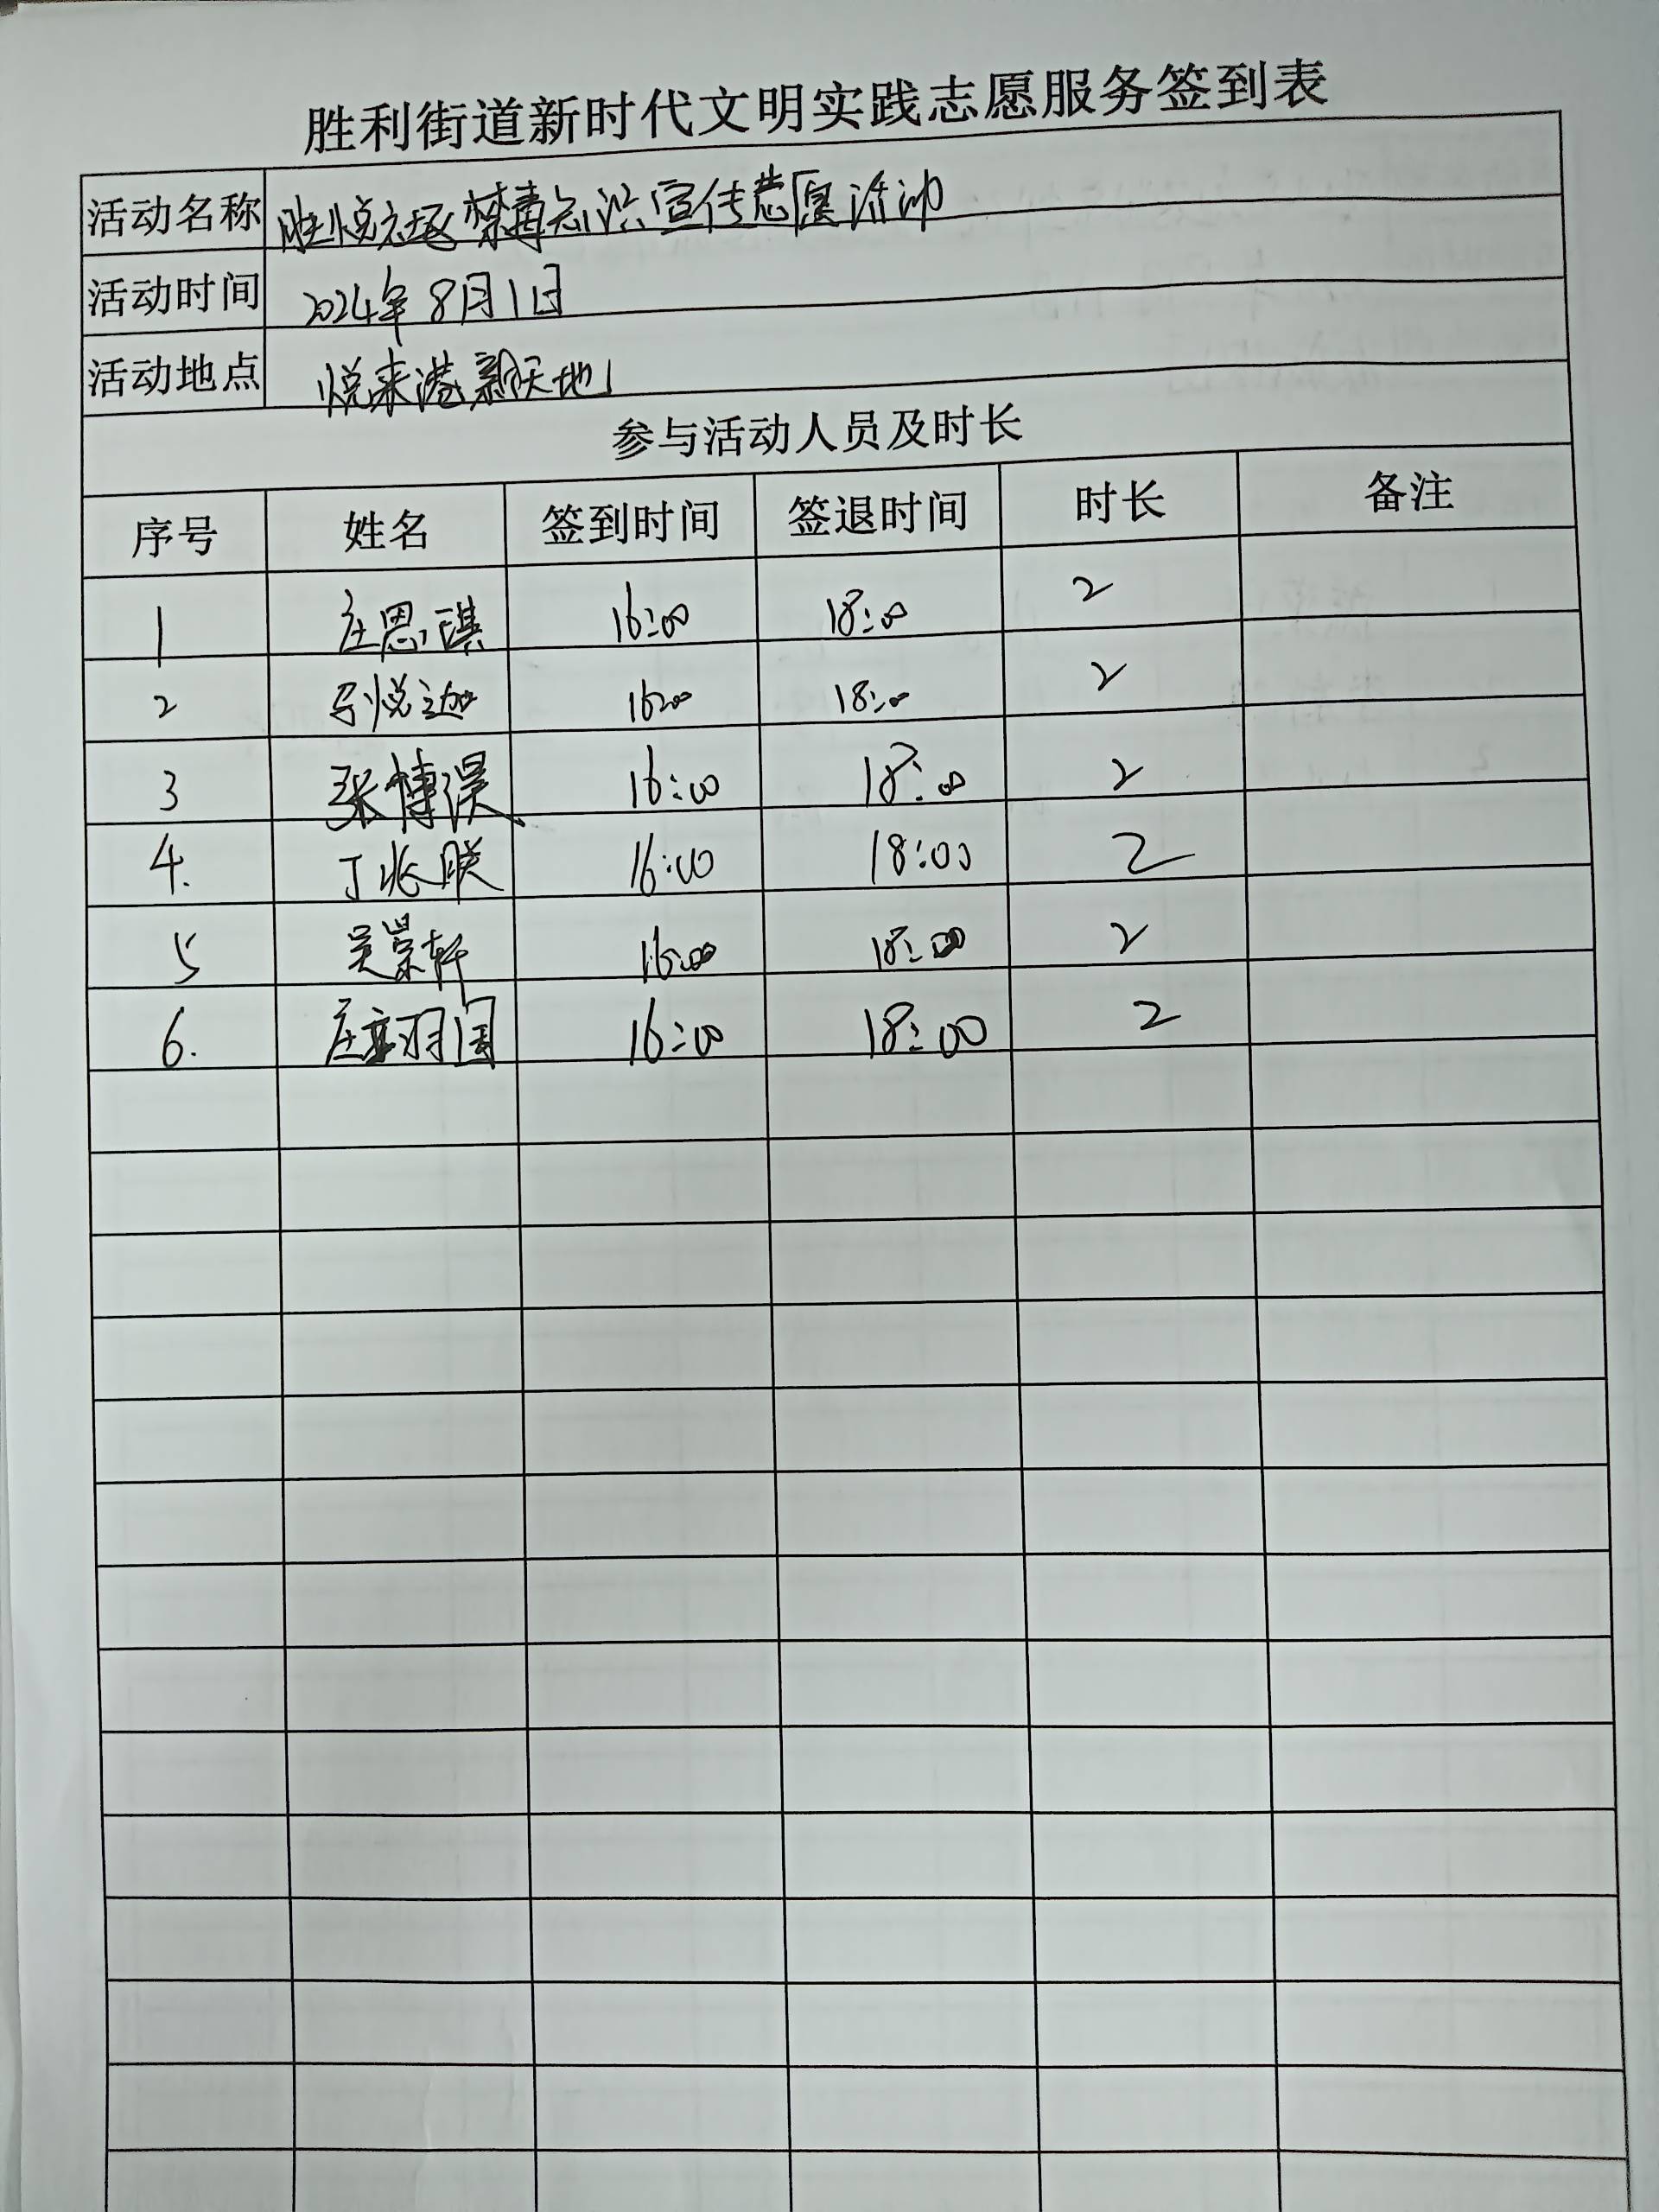 胜利街道新时代文明实践志愿服务签到表
活动名称 胜悦社区禁毒知识宣传志愿活动
活动时间 2024年8月1日
活动地点 悦来港新天地
参与活动人员及时长
序号 姓名 签到时间 签退时间 时长 备注
1 庄恩琪 16:00 18:00 2
2 马悦迦 16:00 18:00 2
3 张博淏 16:00 18:00 2
4. 丁兆朕 16:00 18:00 2
5 吴景轩 16:00 18:00 2
6. 庄 16:00 18:00 2